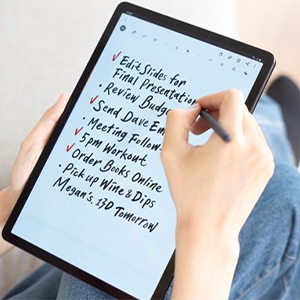 ✓Edit Slides for
Final Presentation
• Review Budg
✓Send Dave Em
• Meeting Follow
✓5pm Workout
✓Order Books Online
• Pick up Wine & Dips
Megan's, 13D Tomorrow